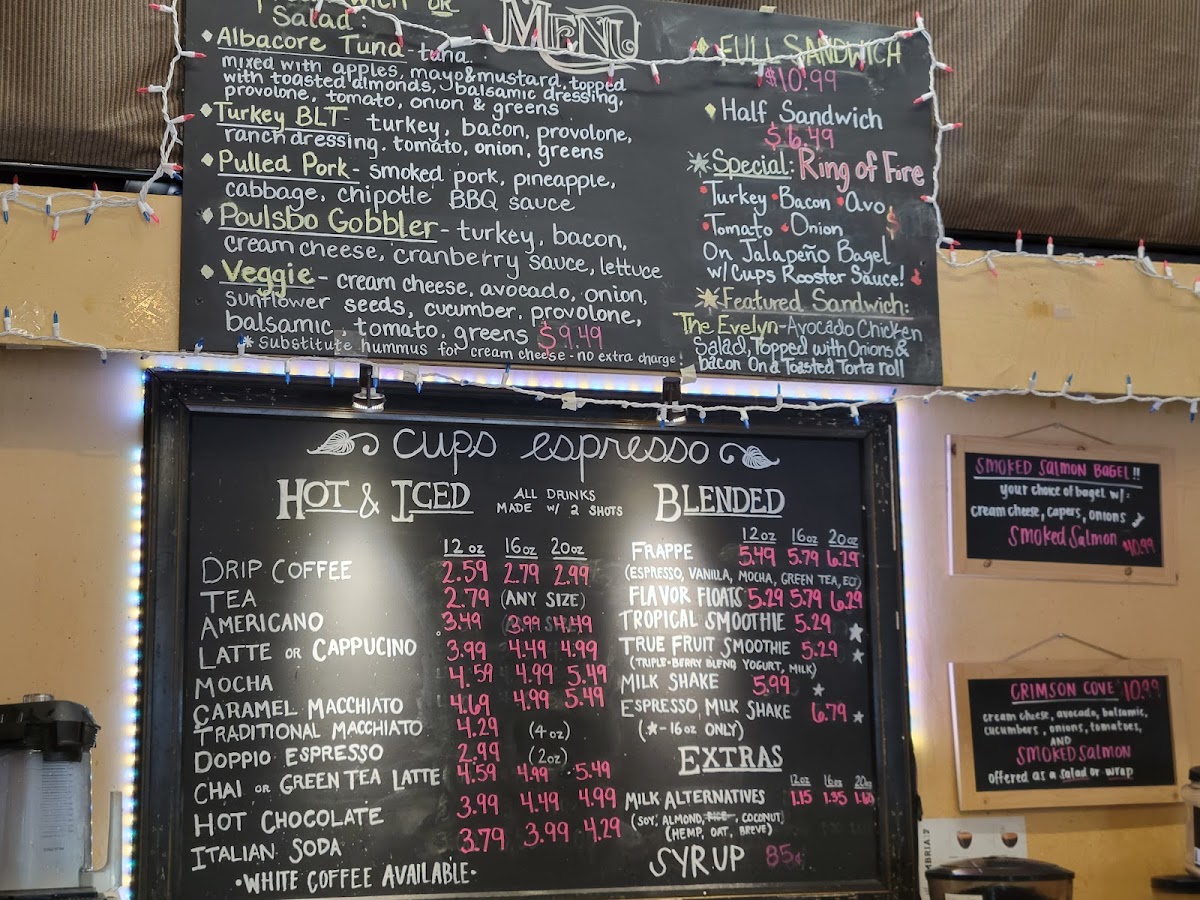 OR
Salad:
MENU
Albacore Tuna - tuna
mixed with apples, mayo & mustard, topped
with toasted almonds, balsamic dressing,
provolone, tomato, onion & greens
Turkey BLT - turkey, bacon, provolone,
ranch dressing. tomato, onion, greens
Pulled Pork - smoked pork, pineapple,
cabbage, chipotle BBQ sauce
Poulsbo Gobbler - turkey, bacon,
cream cheese, cranberry sauce, lettuce
Veggie - cream cheese, avocado, onion,
sunflower seeds, cucumber, provolone,
balsamic, tomato, greens $9.49
* Substitute hummus for cream cheese - no extra charge!
FULL SANDWICH
$10.99
Half Sandwich
$6.49
Special: Ring of Fire
Turkey • Bacon • Avo
Tomato • Onion
$
On Jalapeño Bagel
w/ Cups Rooster Sauce!
Featured Sandwich:
The Evelyn - Avocado Chicken
Salad, Topped with Onions &
bacon On a Toasted Torta roll
cups espresso
HOT & ICED
ALL DRINKS
MADE W/ 2 SHOTS
12 oz 16 oz 20 oz
DRIP COFFEE 2.59 2.79 2.99
TEA 2.79 (ANY SIZE)
AMERICANO 3.49 3.99 4.49
LATTE OR CAPPUCINO 3.99 4.49 4.99
MOCHA 4.59 4.99 5.49
CARAMEL MACCHIATO 4.69 4.99 5.49
TRADITIONAL MACCHIATO 4.29 (4 oz)
DOPPIO ESPRESSO 2.99 (2oz)
CHAI OR GREEN TEA LATTE 4.59 4.99 5.49
HOT CHOCOLATE 3.99 4.49 4.99
ITALIAN SODA 3.79 3.99 4.29
•WHITE COFFEE AVAILABLE•
BLENDED
12oz 16oz 20oz
FRAPPE 5.49 5.79 6.29
(ESPRESSO, VANILLA, MOCHA, GREEN TEA, ECT)
FLAVOR FLOATS 5.29 5.79 6.29
TROPICAL SMOOTHIE 5.29 ★
TRUE FRUIT SMOOTHIE 5.29 ★
(TRIPLE-BERRY BLEND, YOGURT, MILK)
MILK SHAKE 5.99 ★
ESPRESSO MILK SHAKE 6.79 ★
(★-16oz ONLY)
EXTRAS
12oz 16oz 20oz
MILK ALTERNATIVES 1.15 1.35
(SOY, ALMOND, RICE, COCONUT
(HEMP, OAT, BREVE)
SYRUP 85¢
SMOKED SALMON BAGEL!!
your choice of bagel w/:
cream cheese, capers, onions
Smoked Salmon $10.99
CRIMSON COVE 10.99
cream cheese, avocado, balsamic,
cucumbers, onions, tomatoes,
AND
SMOKED SALMON
offered as a salad or wrap